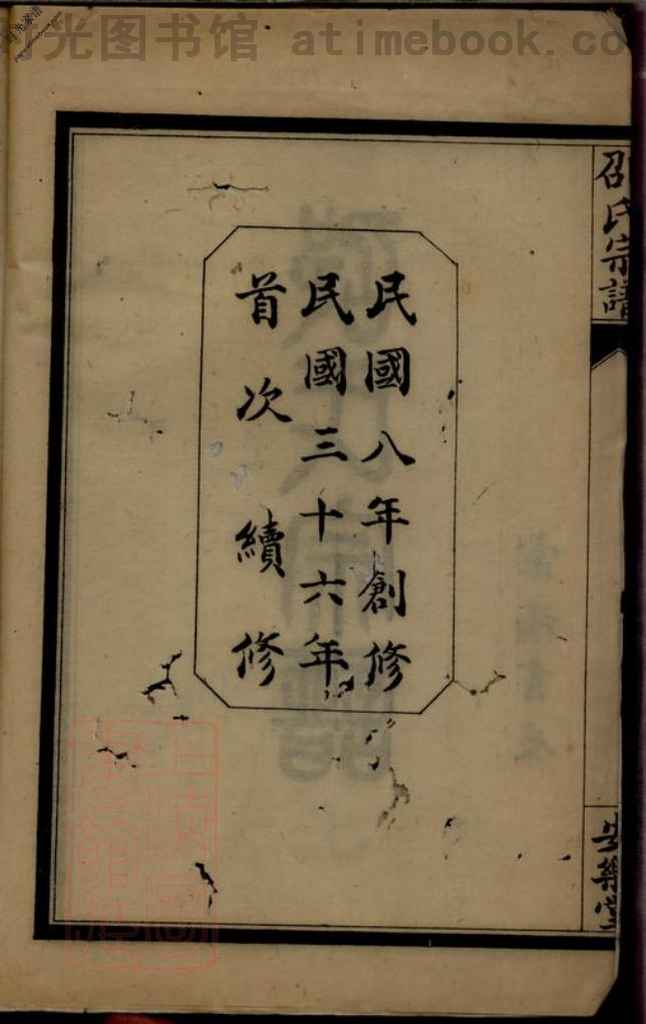 时光图书馆 atimebook.co
民國八年創修
民國三十六年
首次續修
邵氏宗譜
安樂堂